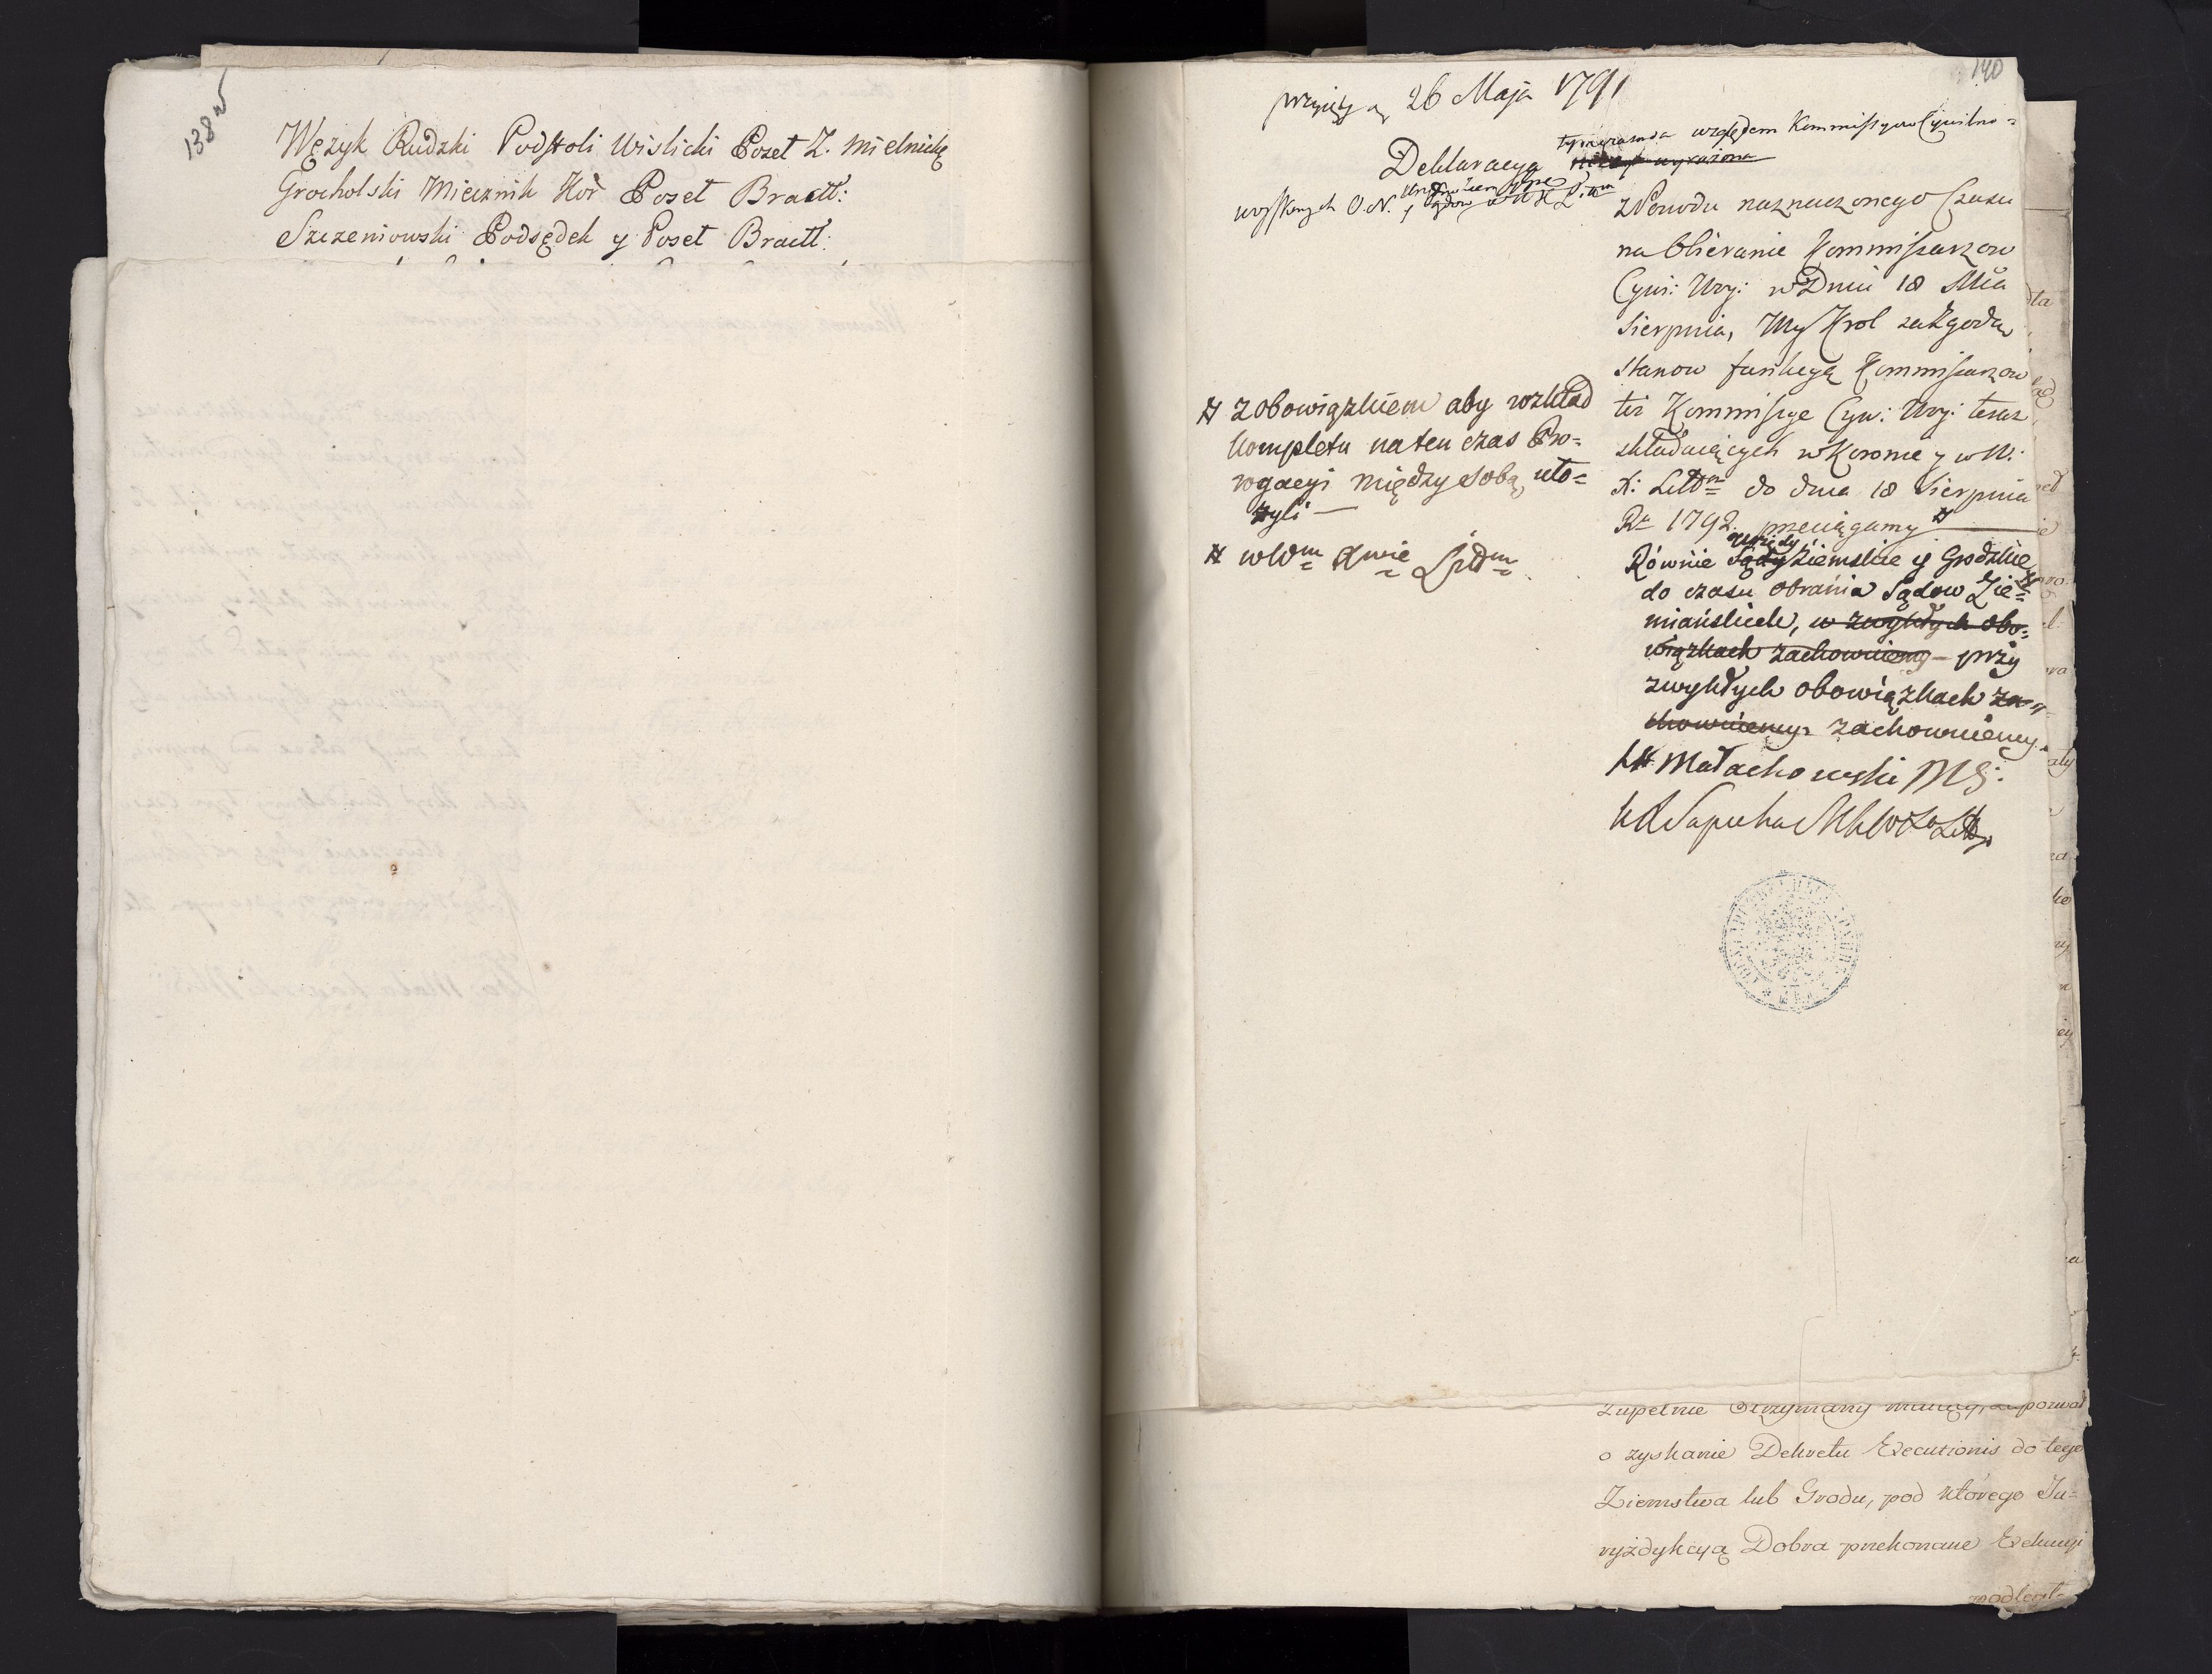 138v
Wężyk Rudzki Podstoli Wislicki Poseł Z. Mielnickę
Grocholski Miecznik Kor Poseł Bracł:
Szczeniowski Podsędek y Poseł Bracł:
140
26 Maja 1791
względem Kommissyow Cywilno=
Deklaracya
woyskowych O. N. y
z Powodu naznaczonego Czasu
na Obieranie Kommissarzow
Cywi: Woy: w Dniu 18 Mca
Sierpnia, My Krol za Zgodą
Stanow funkcyą Kommissarzow
też Kommissye Cyw: Woy: teraz
składaiących w Koronie y w W.
X: Littm do dnia 18 Sierpnia
Ru 1792. przeciągamy #
# z obowiązkiem aby rozkład
kompletu na ten czas Pro=
rogacyi między sobą uło=
żyli —
# w Wm Xwie Littm
urzędy
Równie Sądy Ziemskie y Grodzkie #
do czasu obrania Sądow Zie=
miańskich, w zwykłych obo=
wiązkach zachowuiemy — przy
zwykłych obowiązkach za=
chowuiemy. zachowuiemy.
Małachowski MS:
Sapieha
zupełnie
o zyskanie Dekretu Executionis do tego
Ziemstwa lub Grodu, pod którego Ju=
ryzdykcyą Dobra przekonane Exekucyi